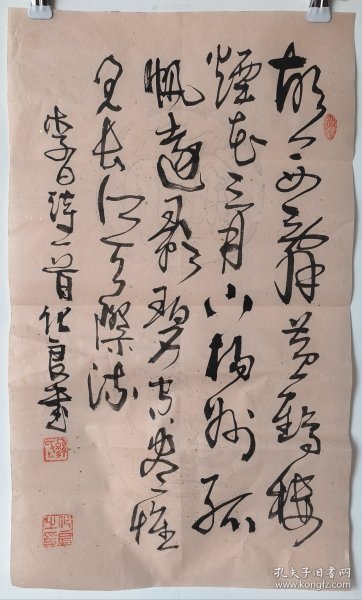 故人西辭黄鶴樓
煙花三月下揚州孤
帆遠影碧空盡唯
見長江天際流
李白詩一首化良書
孔夫子旧书网